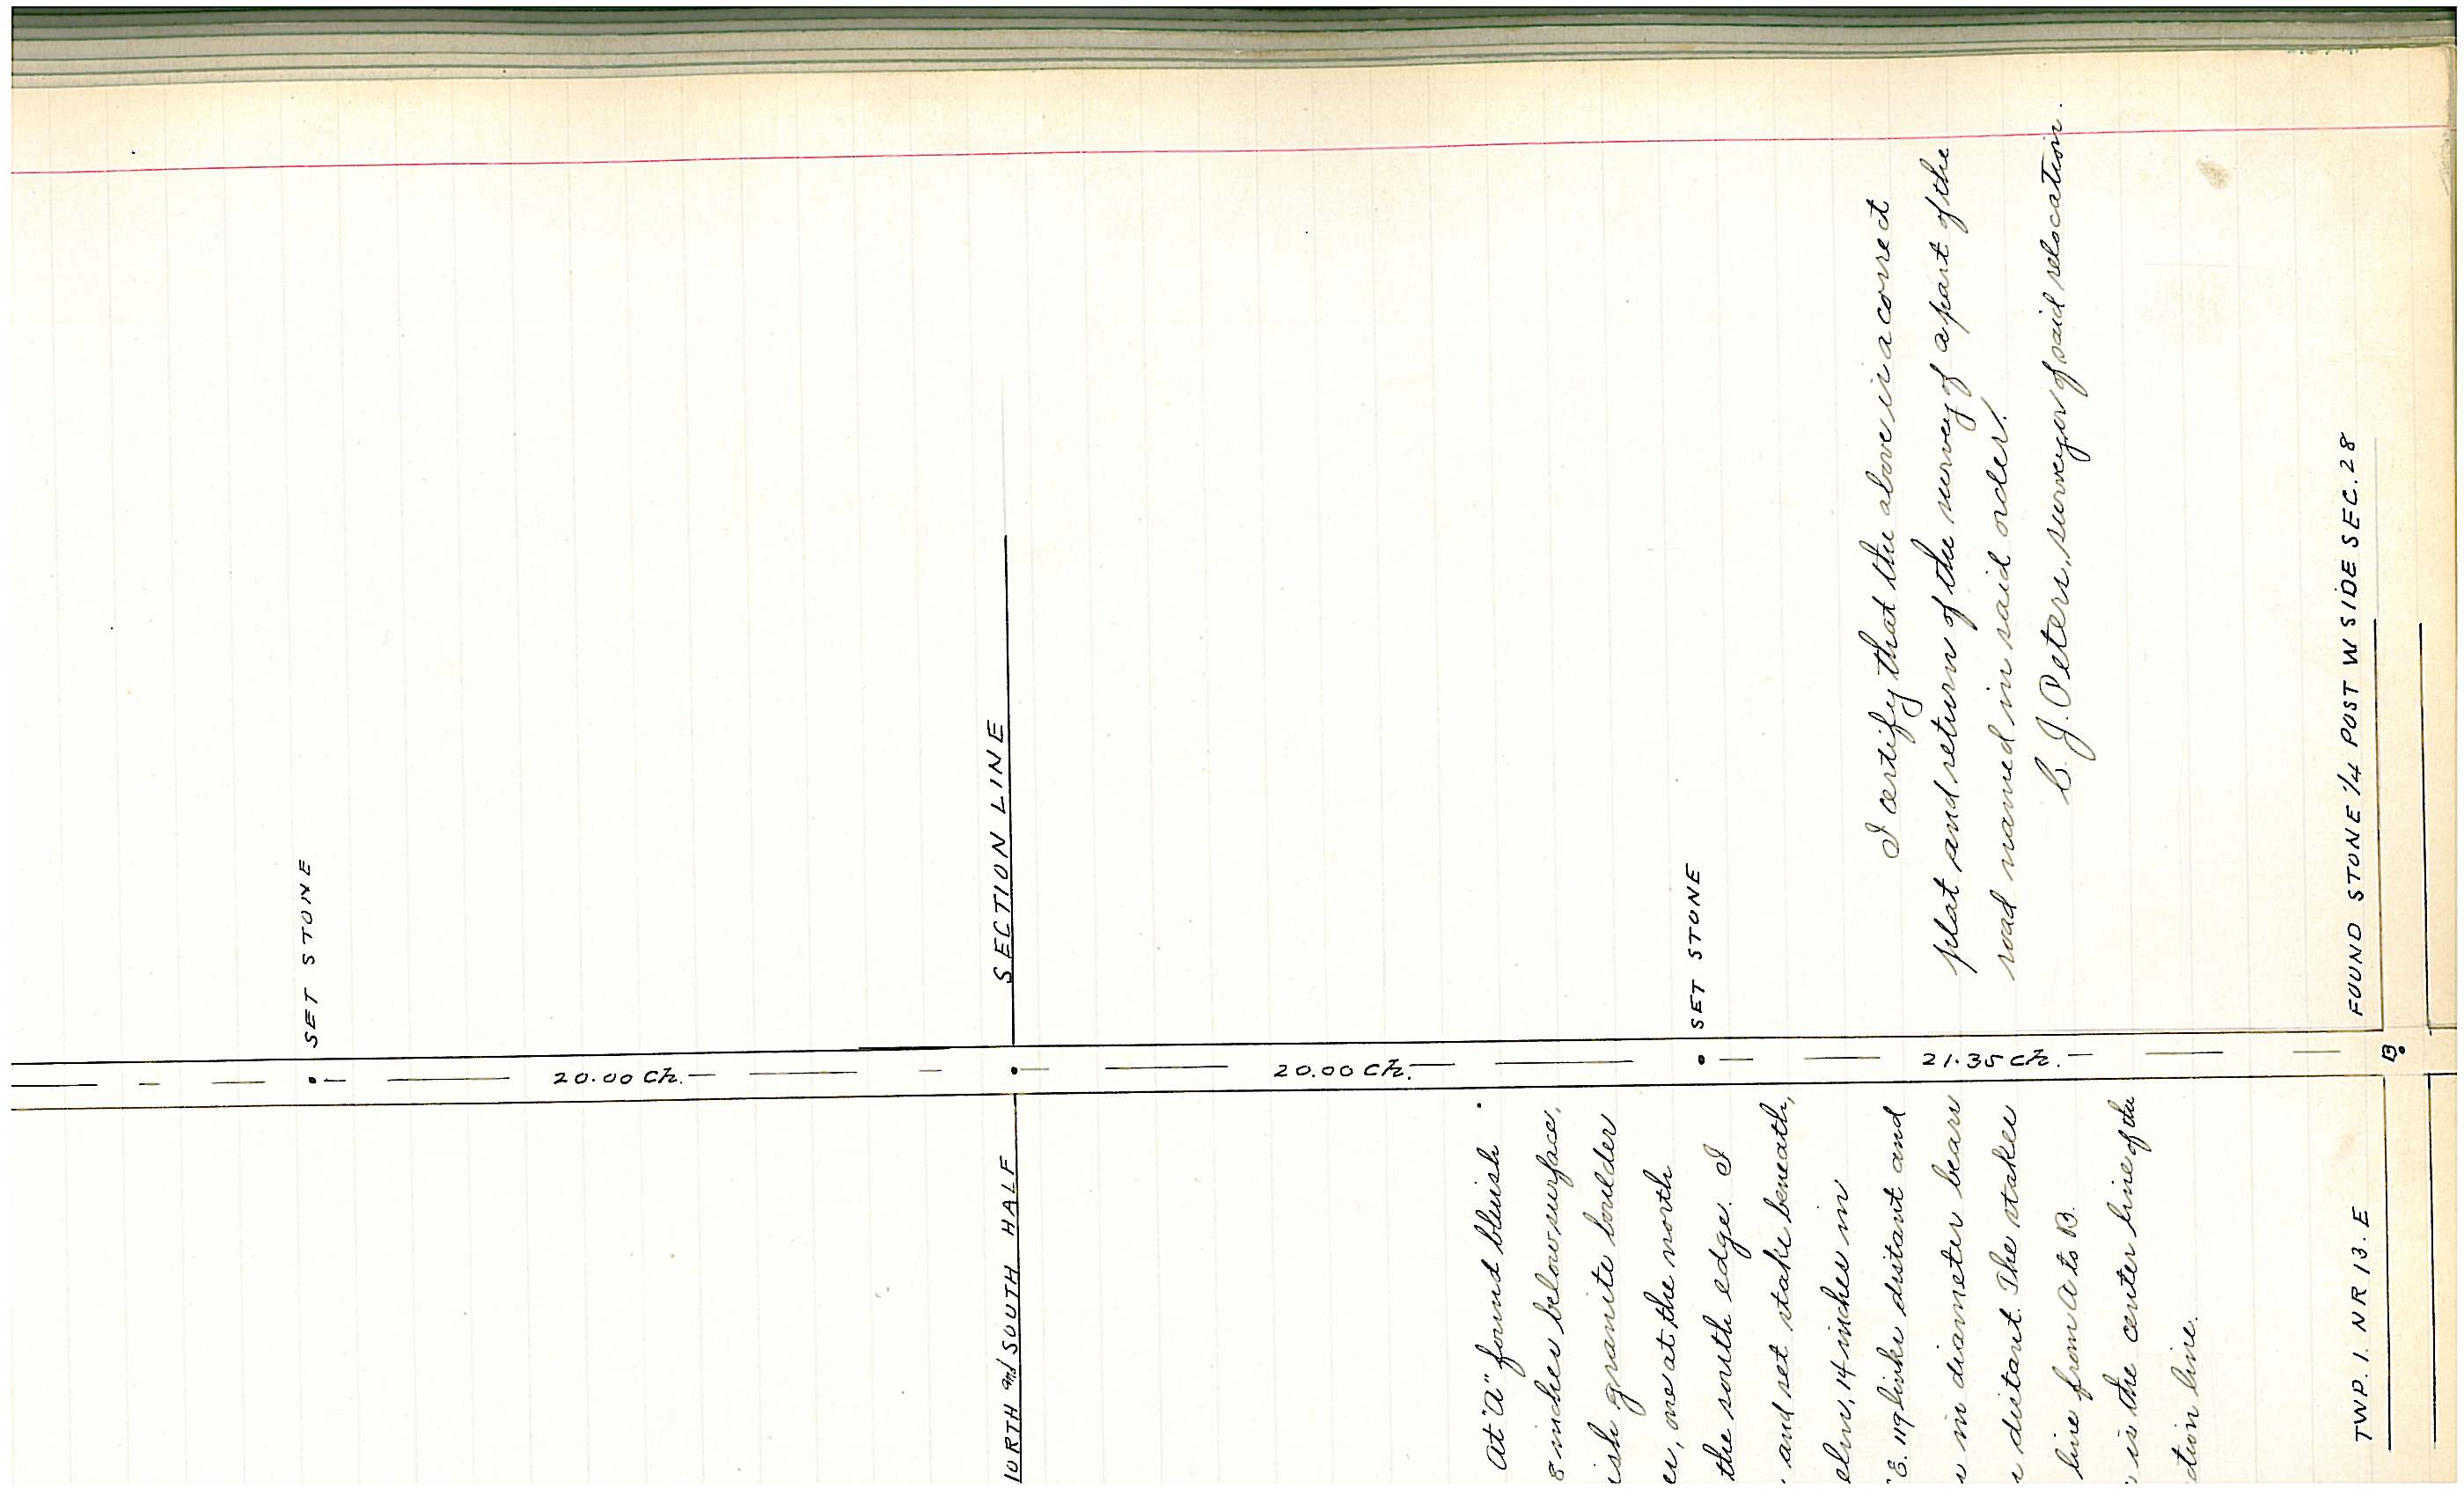 SET STONE
20.00 Ch.
SECTION LINE
NORTH and SOUTH HALF
20.00 Ch.
SET STONE
21.35 Ch.
At "A" found bluish
8 inches below surface,
ish granite boulder
er, one at the north
the south edge. I
and set stake beneath,
elm, 14 inches in
E. 119 links distant and
in diameter bears
distant. The stakes
line from A to B.
is the center line of the
ction line.
I certify that the above is a correct
plat and return of the survey of a part of the
road named in said order.
C. J. Peters, surveyor of said relocation.
FOUND STONE 1/4 POST W SIDE SEC. 28
B.
TWP. 1. N R 13. E